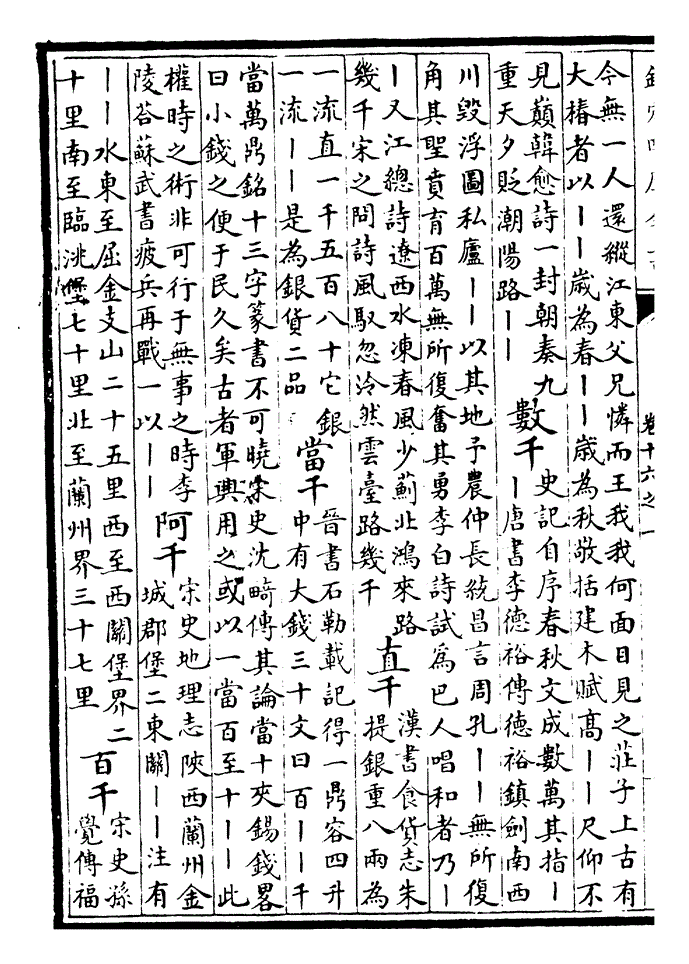 欽定四庫全書
卷十六之一
今無一人還縱江東父兄憐而王我我何面目見之莊子上古有
大椿者以——歲為春——歲為秋敬括建木賦高——尺仰不
見巔韓愈詩一封朝奏九
重天夕貶潮陽路——
數千
史記自序春秋文成數萬其指—
—唐書李德裕傳德裕鎮劍南西
川毀浮圖私廬——以其地予農仲長統昌言周孔——無所復
角其聖賁育百萬無所復奮其勇李白詩試為巴人唱和者乃—
—又江總詩遼西水凍春風少薊北鴻來路
幾千宋之問詩風馭忽泠然雲臺路幾千
直千
漢書食貨志朱
提銀重八兩為
一流直一千五百八十它銀
一流——是為銀貨二品
當千
晉書石勒載記得一鼎容四升
中有大錢三十文曰百——千
當萬鼎銘十三字篆書不可曉宋史沈畸傳其論當十夾錫錢畧
曰小錢之便于民久矣古者軍興用之或以一當百至十——此
權時之術非可行于無事之時李
陵荅蘇武書疲兵再戰一以——
阿千
宋史地理志陜西蘭州金
城郡堡二東關——注有
——水東至屈金支山二十五里西至西關堡界二
十里南至臨洮堡七十里北至蘭州界三十七里
百千
宋史孫
覺傳福